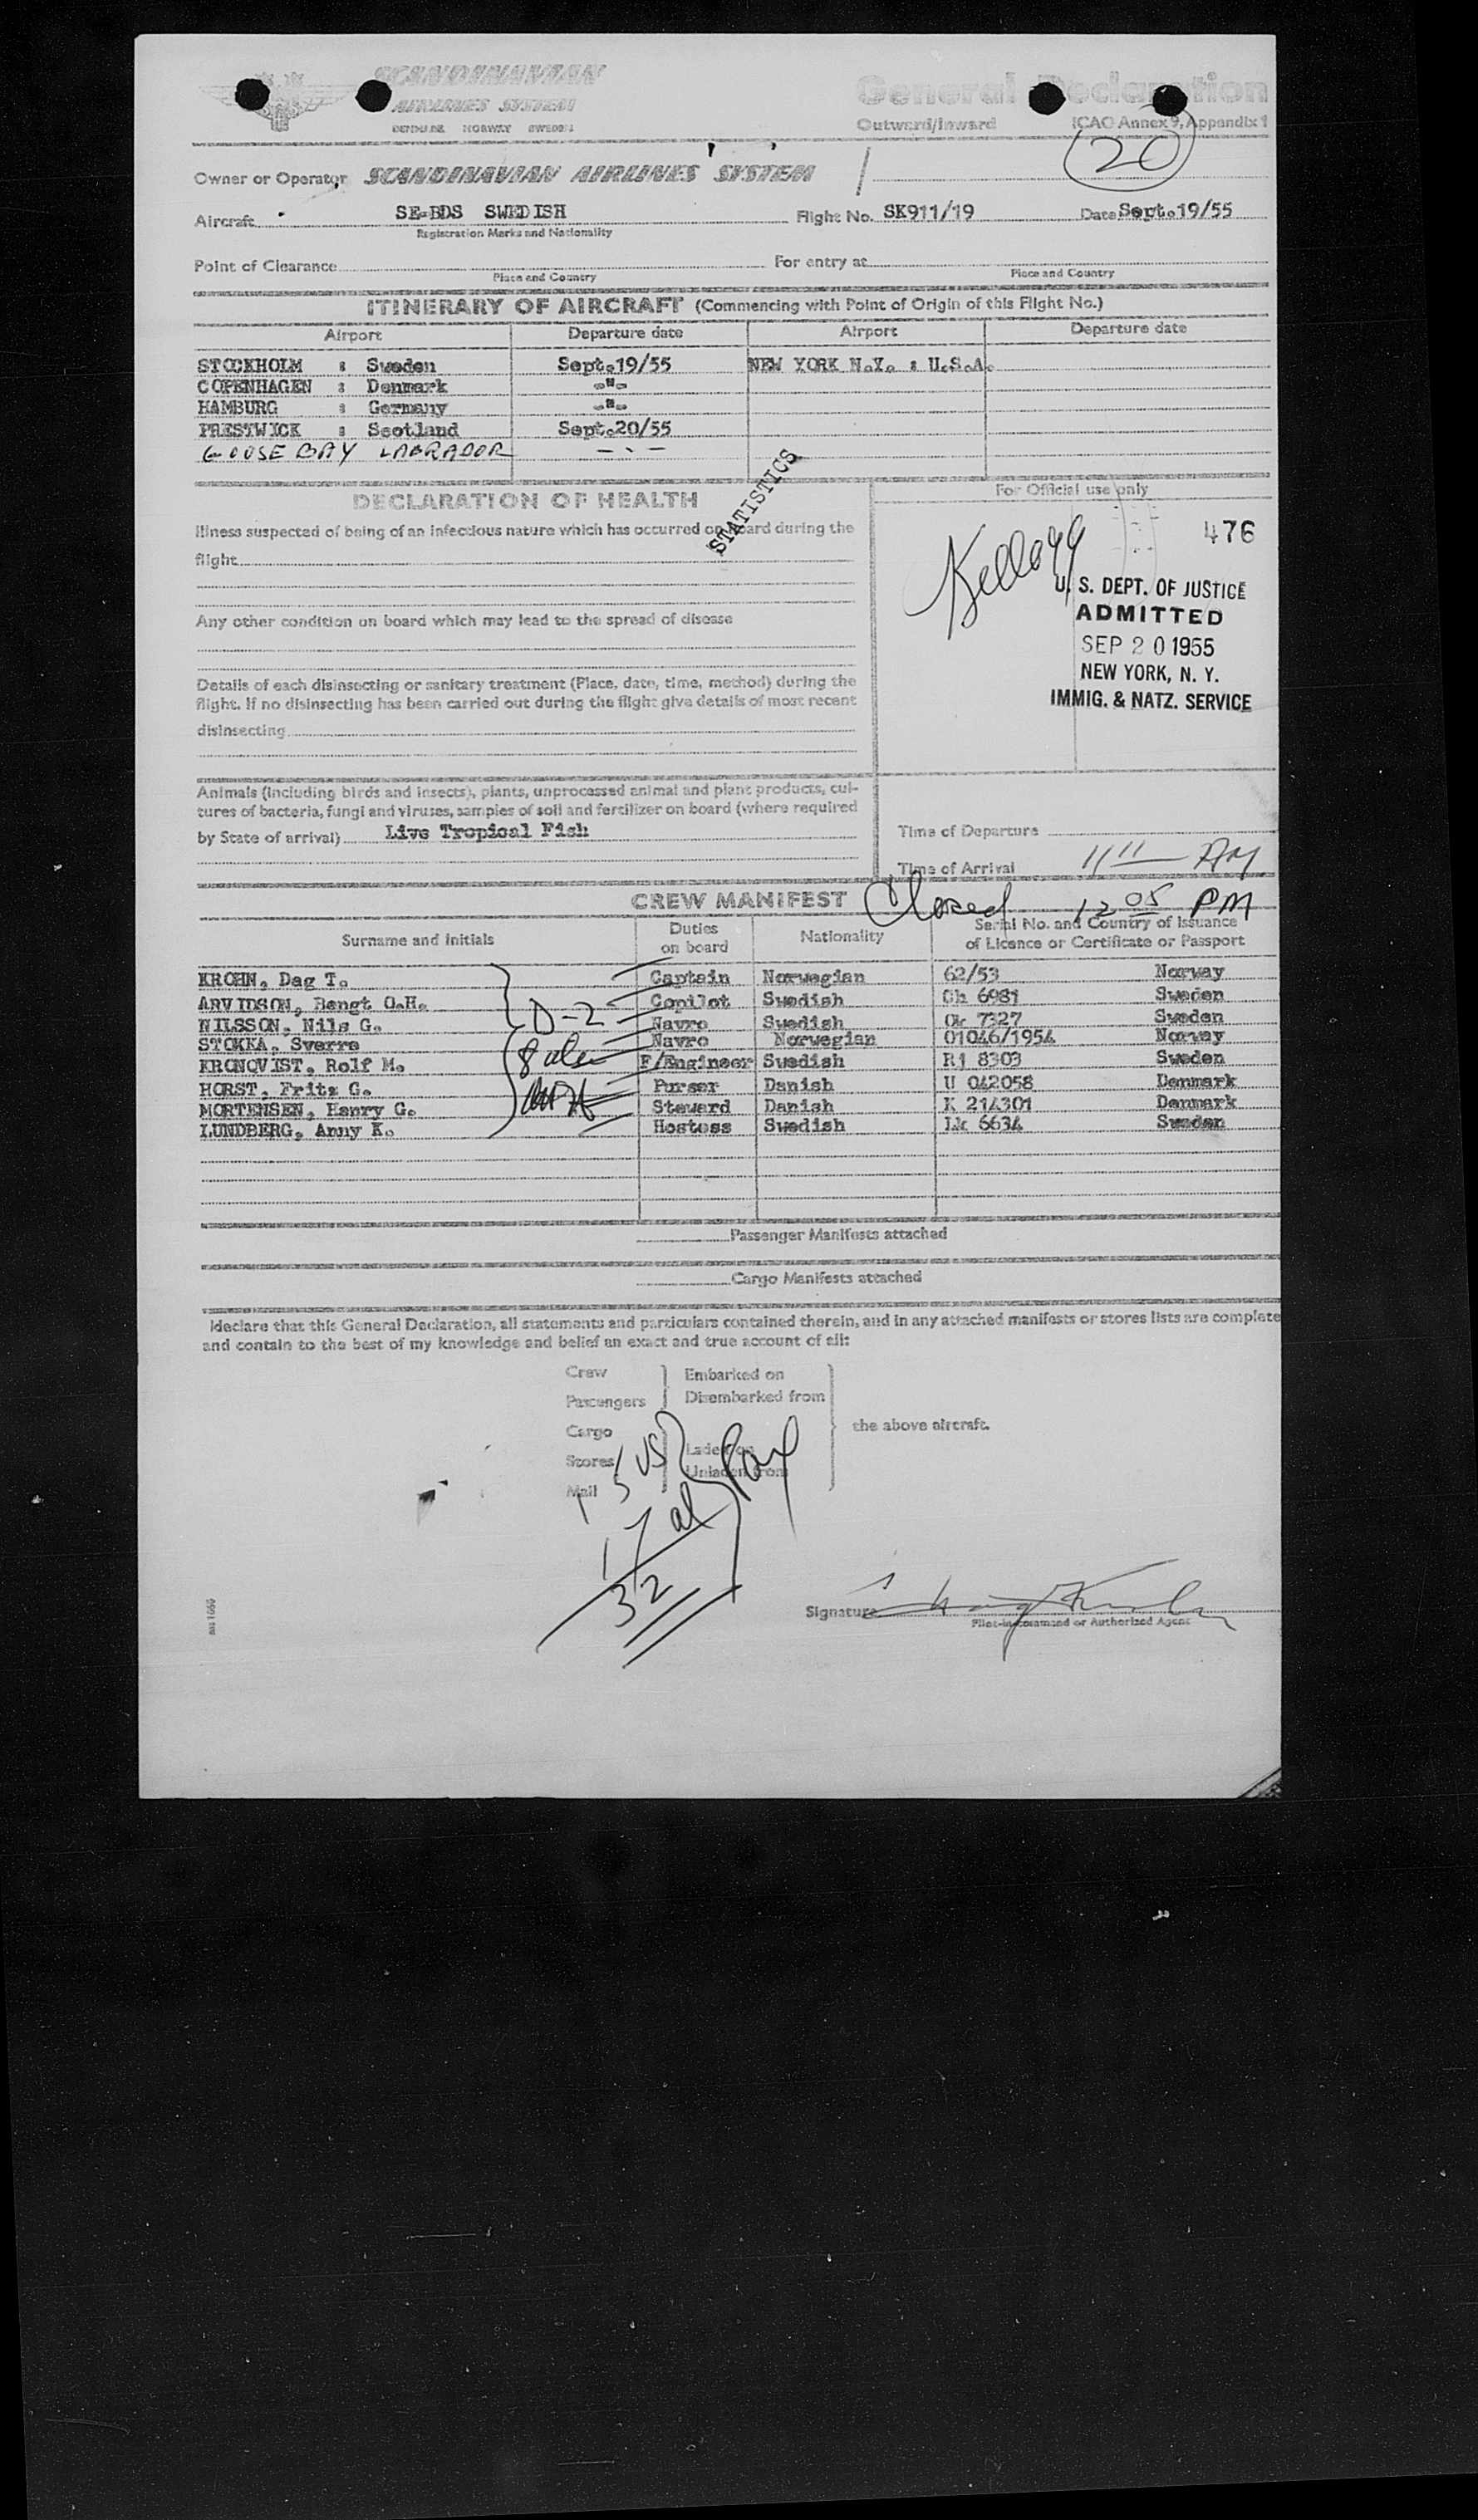 SCANDINAVIAN
AIRLINES SYSTEM
DENMARK NORWAY SWEDEN
General Declaration
Outward/Inward ICAO Annex 9, Appendix 1
20
Owner or Operator SCANDINAVIAN AIRLINES SYSTEM
Aircraft SE-BDS SWEDISH Flight No. SK911/19 Date Sept.19/55
Registration Marks and Nationality
Point of Clearance For entry at
Place and Country Place and Country
ITINERARY OF AIRCRAFT (Commencing with Point of Origin of this Flight No.)
Airport Departure date Airport Departure date
STOCKHOLM : Sweden Sept.19/55 NEW YORK N.Y. : U.S.A.
COPENHAGEN : Denmark -"-
HAMBURG : Germany -"-
PRESTWICK : Scotland Sept.20/55
GOOSE BAY LABRADOR - . -
STATISTICS
DECLARATION OF HEALTH
Illness suspected of being of an infectious nature which has occurred on board during the
flight
Any other condition on board which may lead to the spread of disease
Details of each disinsecting or sanitary treatment (Place, date, time, method) during the
flight. If no disinsecting has been carried out during the flight give details of most recent
disinsecting
Animals (including birds and insects), plants, unprocessed animal and plant products, cul-
tures of bacteria, fungi and viruses, samples of soil and fertilizer on board (where required
by State of arrival) Live Tropical Fish
For Official use only
476
Kellogg
U. S. DEPT. OF JUSTICE
ADMITTED
SEP 20 1955
NEW YORK, N. Y.
IMMIG. & NATZ. SERVICE
Time of Departure
Time of Arrival 11 11 AM
Closed 12 05 PM
CREW MANIFEST
Surname and Initials Duties on board Nationality Serial No. and Country of Issuance of Licence or Certificate or Passport
KROHN, Dag T. Captain Norwegian 62/53 Norway
ARVIDSON, Bengt O.H. Copilot Swedish Ch 6981 Sweden
NILSSON, Nils G. Navro Swedish Ok 7327 Sweden
STOKKA, Sverre Navro Norwegian 01046/1954 Norway
KRONQVIST, Rolf M. F/Engineer Swedish Rj 8303 Sweden
HORST, Fritz G. Purser Danish U 042058 Denmark
MORTENSEN, Henry G. Steward Danish K 214301 Denmark
LUNDBERG, Anny K. Hostess Swedish Lk 6634 Sweden
D-2
Passenger Manifests attached
Cargo Manifests attached
I declare that this General Declaration, all statements and particulars contained therein, and in any attached manifests or stores lists are complete
and contain to the best of my knowledge and belief an exact and true account of all:
Crew Embarked on
Passengers Disembarked from
Cargo the above aircraft.
Stores Laden on
Mail Unladen from
15 US
17 al Pax
32
Signature
Pilot-in-command or Authorized Agent